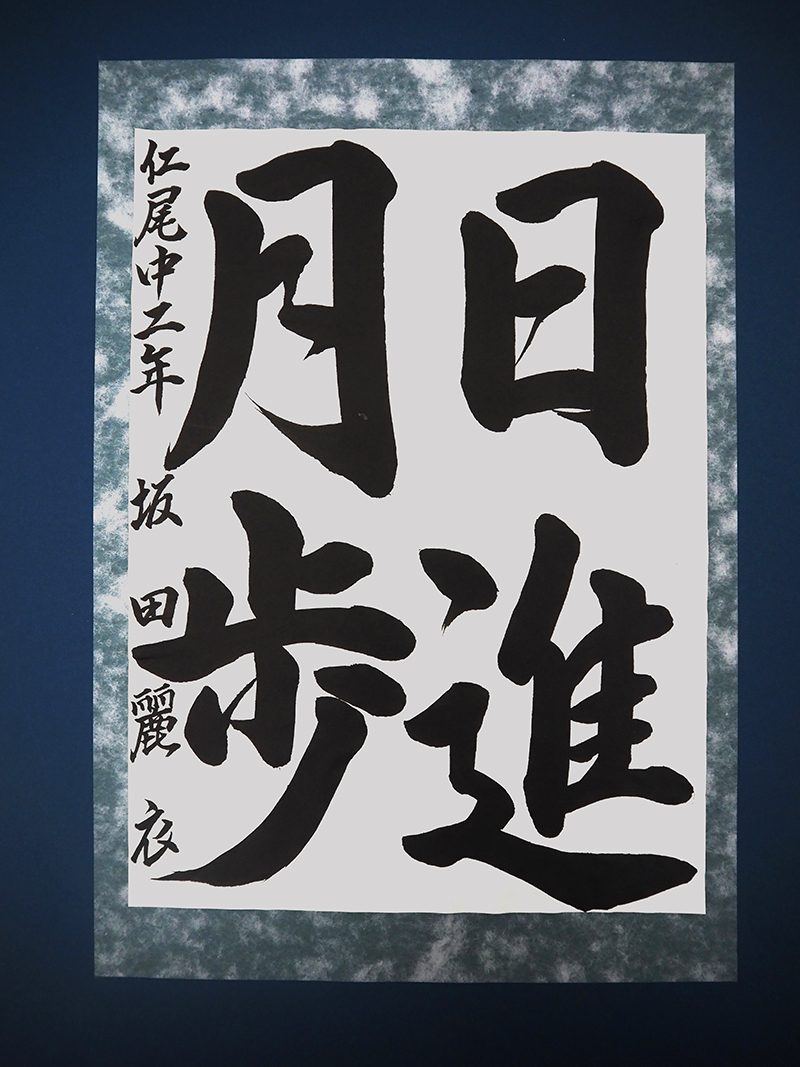 日進
月歩
仁尾中二年 坂田麗衣